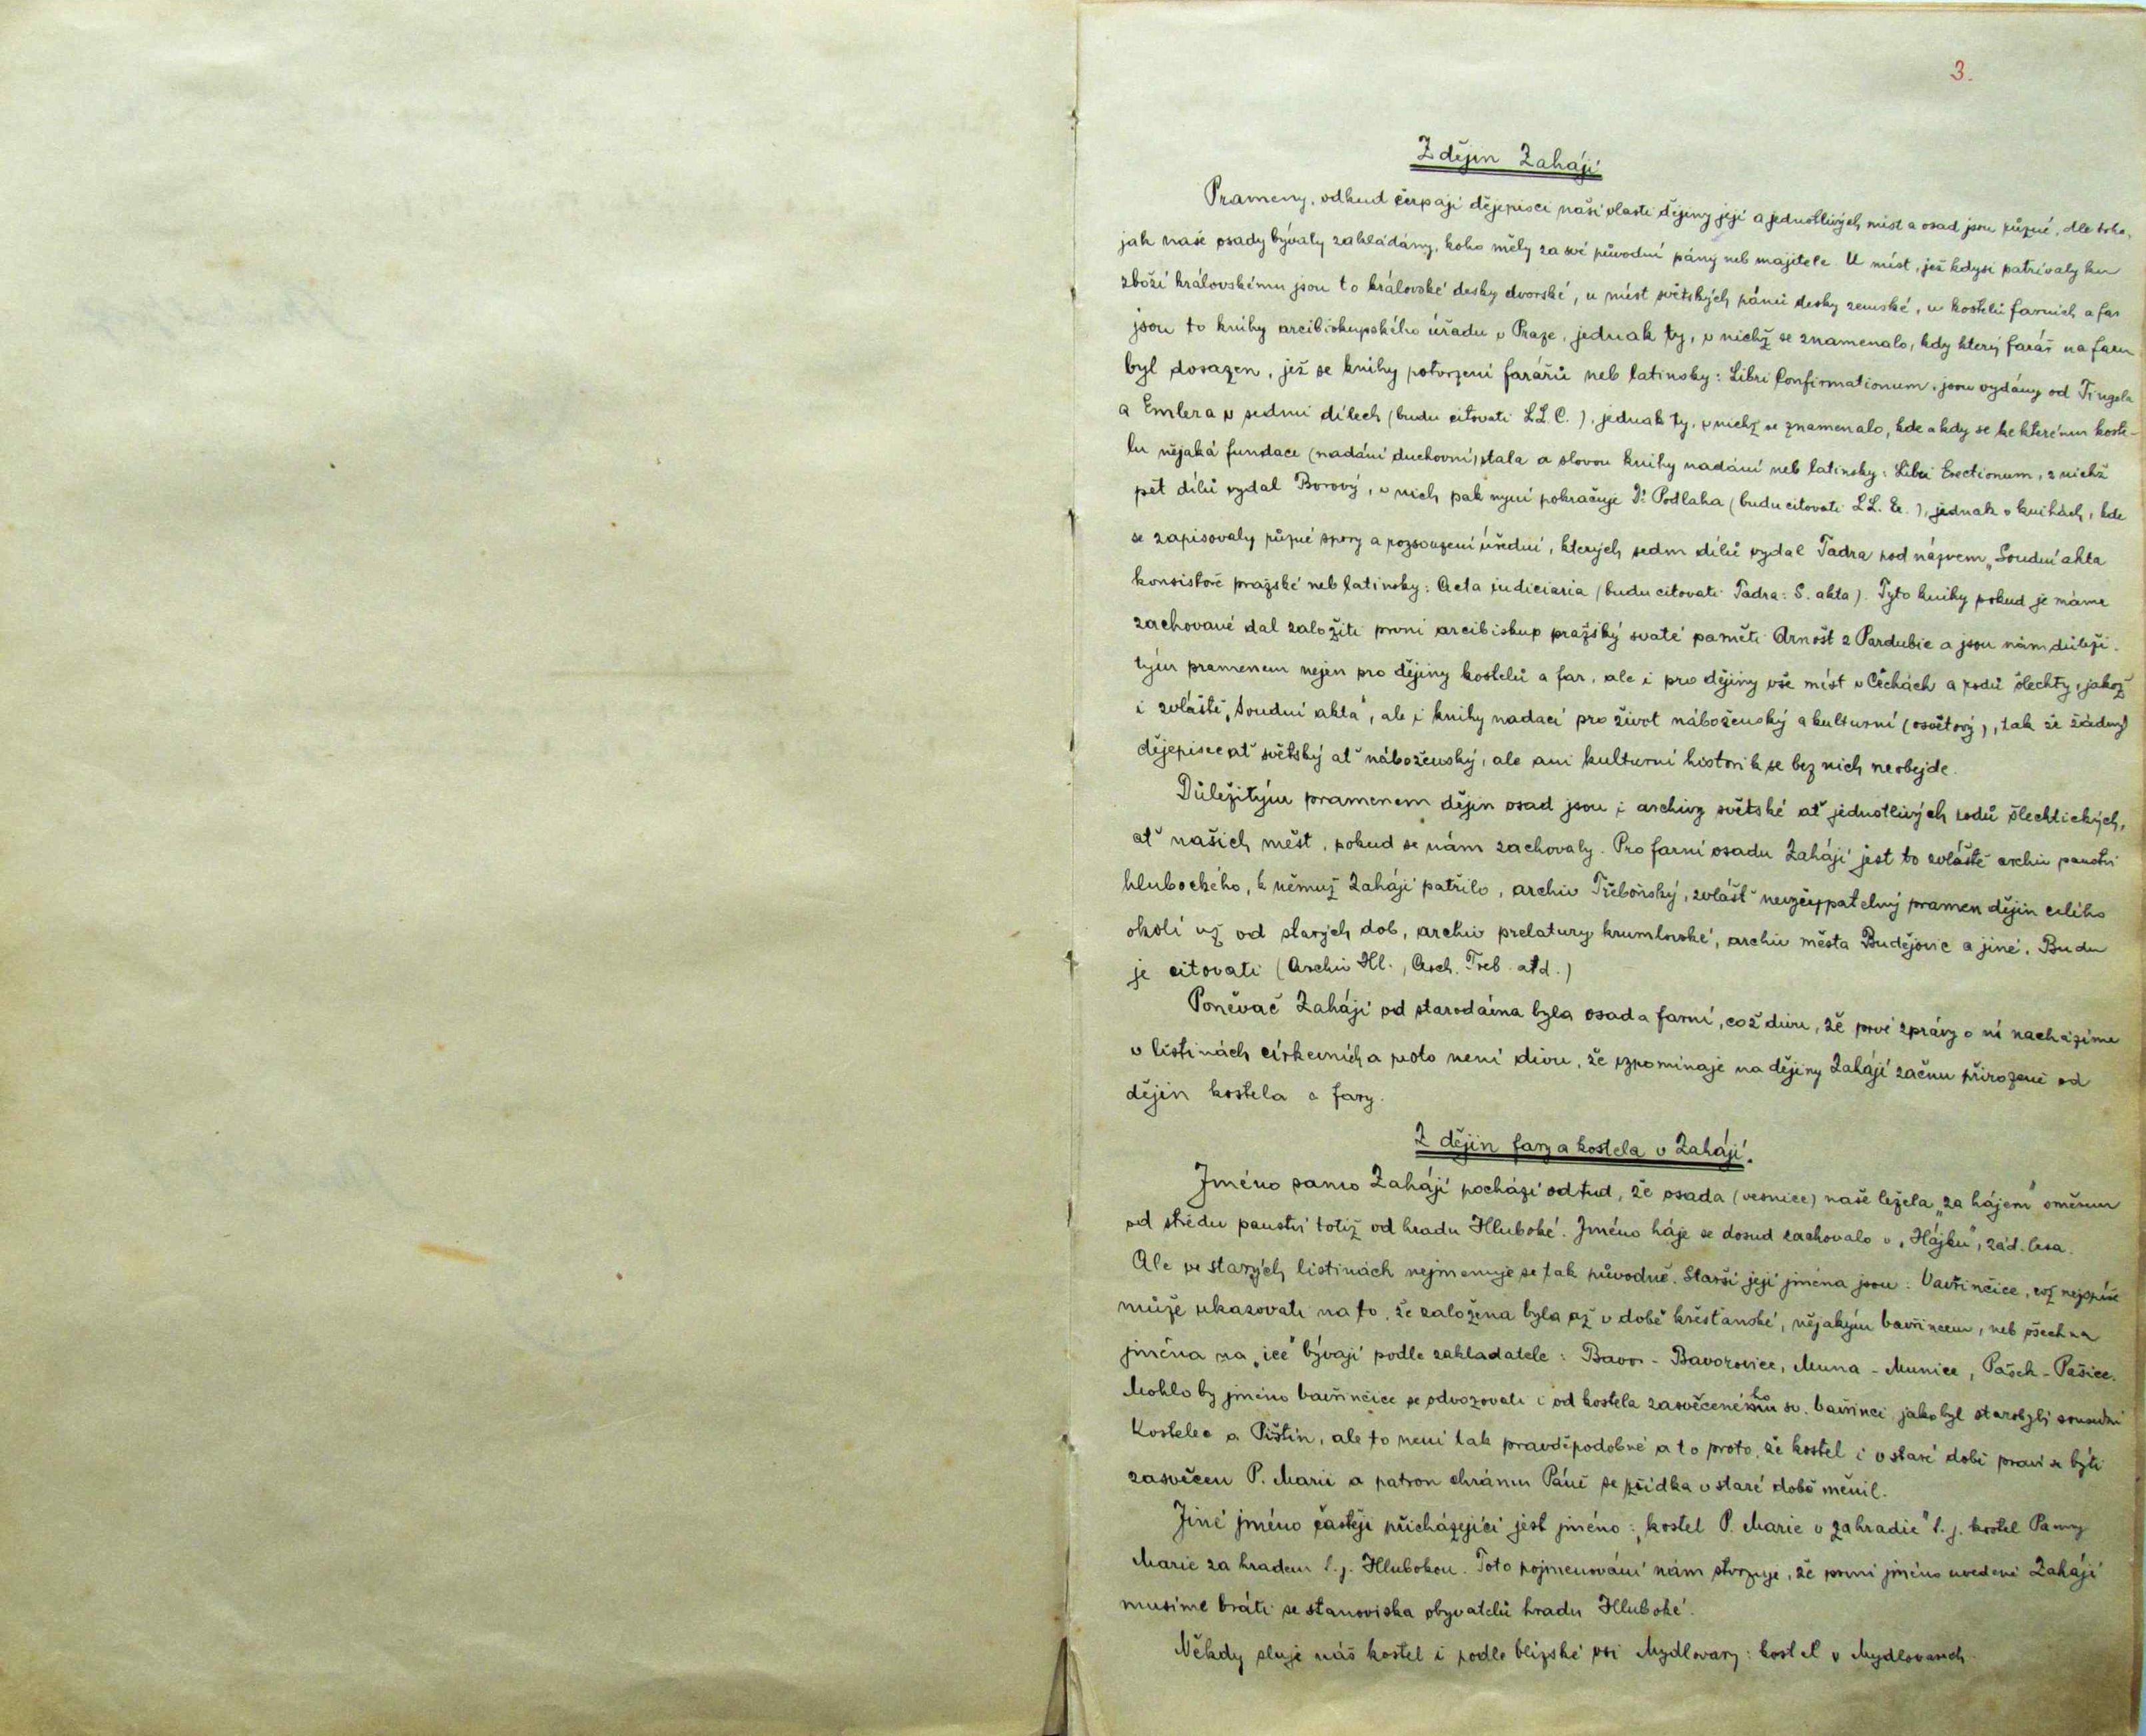 3.
Z dějin Zahájí
Prameny, odkud čerpají dějepisci naší vlasti dějiny její a jednotlivých míst a osad jsou různé, dle toho,
jak naše osady bývaly zakládány, koho měly za své původní pány neb majitele. U míst, jež kdysi patřívaly ku
zboží královskému jsou to královské desky dvorské, u míst světských pánů desky zemské, u kostelů farních a far
jsou to knihy arcibiskupského úřadu v Praze, jednak ty, v nichž se znamenalo, kdy který farář na faru
byl dosazen, jež se knihy potvrzení farářů neb latinsky: Libri Confirmationum, jsou vydány od Tingela
a Emlera v sedmi dílech (budu citovati LL. C.), jednak ty, v nichž se znamenalo, kde a kdy se ke kterému koste-
lu nějaká fundace (nadání duchovní) stala a slovou knihy nadání neb latinsky: Libri Erectionum, z nichž
pět dílů vydal Borový, v nich pak nyní pokračuje Dr Podlaha (budu citovati LL. Er.), jednak v knihách, kde
se zapisovaly různé spory a rozsouzení úřední, kterých sedm dílů vydal Tadra pod názvem „Soudní akta
konsistoře pražské neb latinsky: Acta iudiciaria (budu citovati Tadra: S. akta). Tyto knihy pokud je máme
zachované dal založiti první arcibiskup pražský svaté paměti Arnošt z Pardubic a jsou nám důleži-
tým pramenem nejen pro dějiny kostelů a far, ale i pro dějiny vše míst v Čechách a rodů šlechty, jakož
i zvláště „Soudní akta“, ale i knihy nadací pro život náboženský a kulturní (osvětový), tak že žádný
dějepisec ať světský ať náboženský, ale ani kulturní historik se bez nich neobejde.
Důležitým pramenem dějin osad jsou i archivy světské ať jednotlivých rodů šlechtických,
ať našich měst, pokud se nám zachovaly. Pro farní osadu Zahájí jest to zvláště archiv panství
hlubockého, k němuž Zahájí patřilo, archiv Třeboňský, zvlášť nevyčerpatelný pramen dějin celého
okolí už od starých dob, archiv prelatury krumlovské, archiv města Budějovic a jiné. Budu
je citovati (Archiv Hl., Arch. Třeb. atd.)
Poněvač Zahájí od starodávna byla osada farní, což divu, že prvé zprávy o ní nacházíme
v listinách církevních a proto není divu, že vzpomínaje na dějiny Zahájí začnu přirozeně od
dějin kostela a fary.
Z dějin fary a kostela v Zahájí.
Jméno samo Zahájí pochází odtud, že osada (vesnice) naše ležela „za hájem“ směrem
od středu panství totiž od hradu Hluboké. Jméno háje se dosud zachovalo v „Hájku“, zád. lesa.
Ale ve starých listinách nejmenuje se tak původně. Starší její jména jsou: Vavřinčice, což nejspíše
může ukazovati na to, že založena byla až v době křesťanské, nějakým Vavřincem, neb všechna
jména na „ice“ bývají podle zakladatele: Bavor - Bavorovice, Muna - Munice, Pašek - Pašice.
Mohlo by jméno Vavřinčice se odvozovati i od kostela zasvěceného sv. Vavřinci, jako byl starobylý sousední
Kostelec a Pištín, ale to není tak pravděpodobné a to proto, že kostel i v staré době praví se býti
zasvěcen P. Marii a patron chrámu Páně se zřídka v staré době měnil.
Jiné jméno častěji přicházející jest jméno: „kostel P. Marie v zahradie“ t. j. kostel Panny
Marie za hradem t. j. Hlubokou. Toto pojmenování nám stvrzuje, že první jméno uvedené Zahájí
musíme bráti se stanoviska obyvatelů hradu Hluboké.
Někdy sluje náš kostel i podle blízské vsi Mydlovary: kostel v Mydlovarech